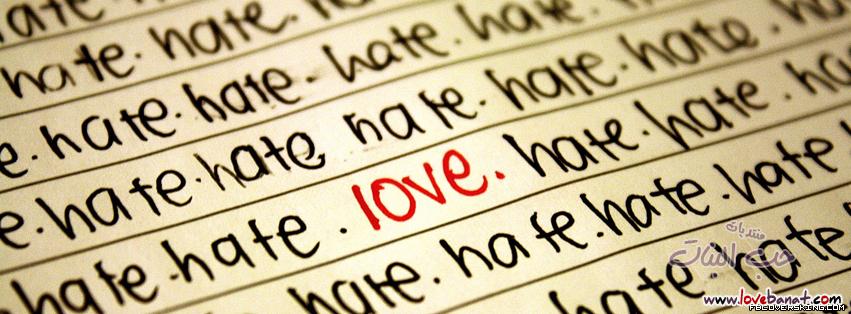 ate hate.
hate. hate. hate. hate
e. hate. hate. hate. hate.
e. hate. hate hate. hate. hate. ha
hate. hate. love. hate. hate. ha
hate. hate. hate. hate
hate. hate
منتديات
حب البنات
www.lovebanat.com
FBCOVERSKING.COM